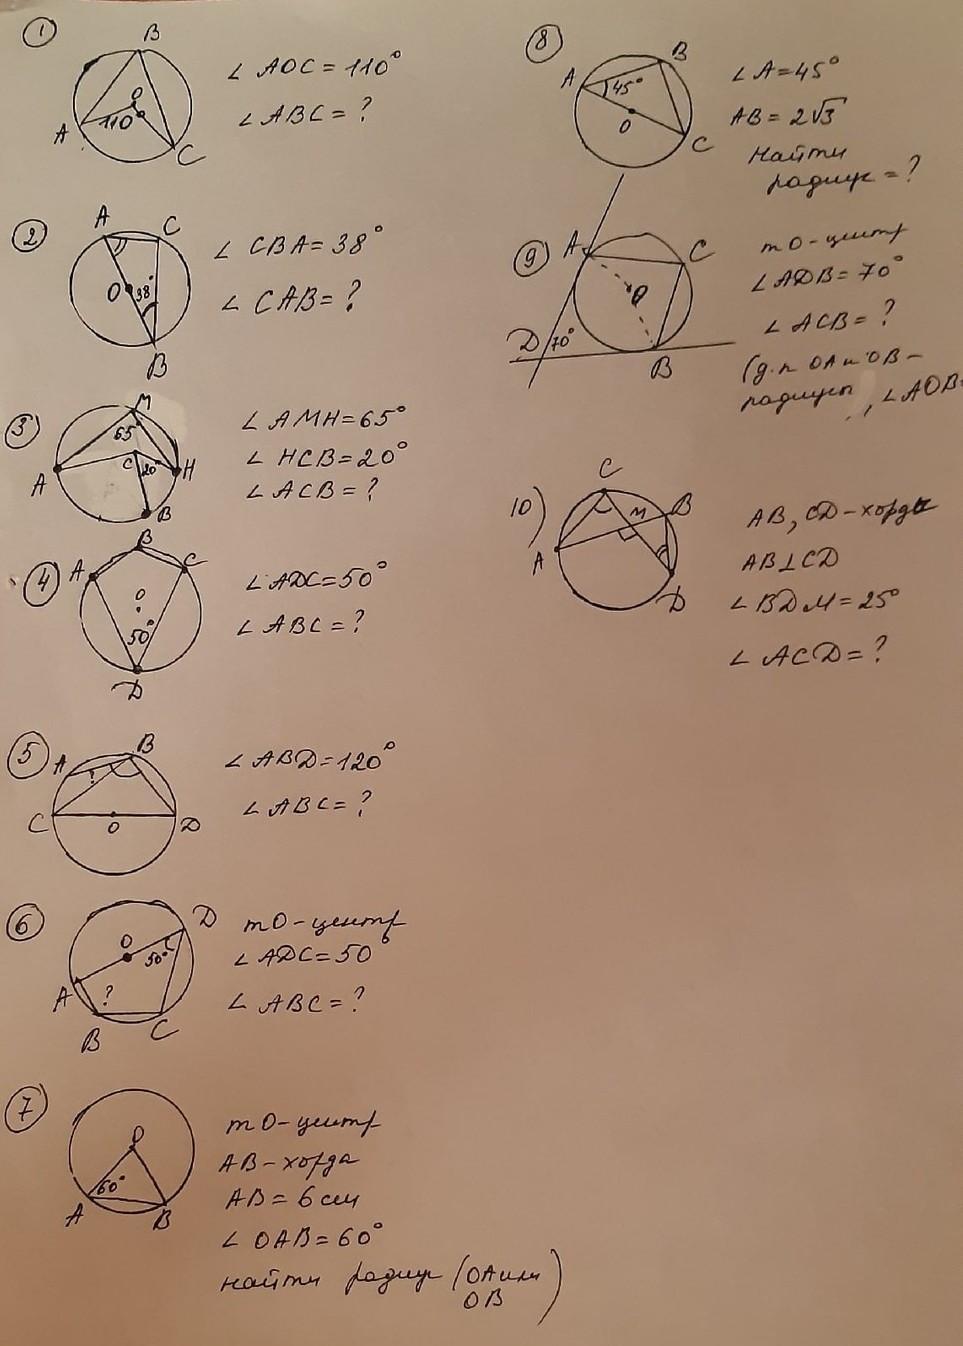 1
B
O
110
A
C
∠ AOC = 110°
∠ ABC = ?
2
A
C
O
38°
B
∠ CBA = 38°
∠ CAB = ?
3
M
65°
C
20°
A
H
B
∠ AMH = 65°
∠ HCB = 20°
∠ ACB = ?
4
B
A
C
O
50°
D
∠ ADC = 50°
∠ ABC = ?
5
B
A
?
C
O
D
∠ ABD = 120°
∠ ABC = ?
6
D
O
50°
A
?
B
C
т O - центр
∠ ADC = 50°
∠ ABC = ?
7
O
60°
A
B
т O - центр
AB - хорда
AB = 6 см
∠ OAB = 60°
найти радиус (OA или
OB)
8
B
A
45°
O
C
∠ A = 45°
AB = 2√3
Найти
радиус = ?
9
A
C
O
D
70°
B
т O - центр
∠ ADB = 70°
∠ ACB = ?
(д.п OA и OB -
радиусы, ∠ AOB =
10)
C
M
B
A
D
AB, CD - хорды
AB ⊥ CD
∠ BDM = 25°
∠ ACD = ?